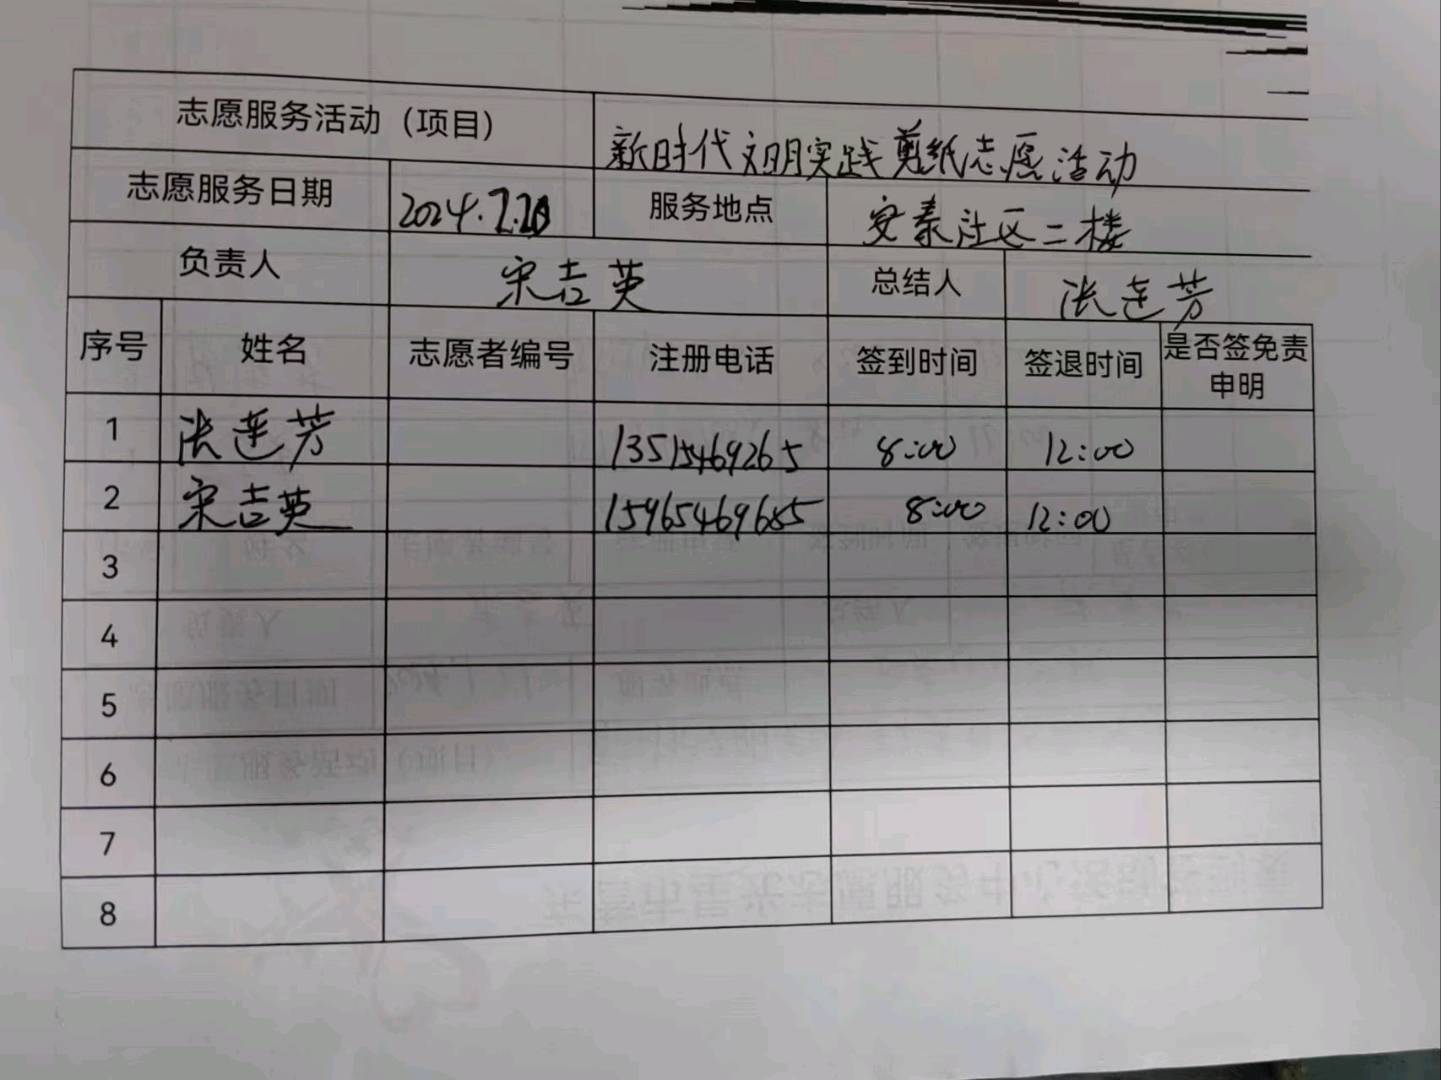 志愿服务活动（项目） 新时代文明实践剪纸志愿活动
志愿服务日期 2024.7.20 服务地点 安泰社区二楼
负责人 宋吉英 总结人 张莲芳
序号 姓名 志愿者编号 注册电话 签到时间 签退时间 是否签免责
申明
1 张莲芳 13515469265 8:00 12:00
2 宋吉英 15965469685 8:00 12:00
3
4
5
6
7
8